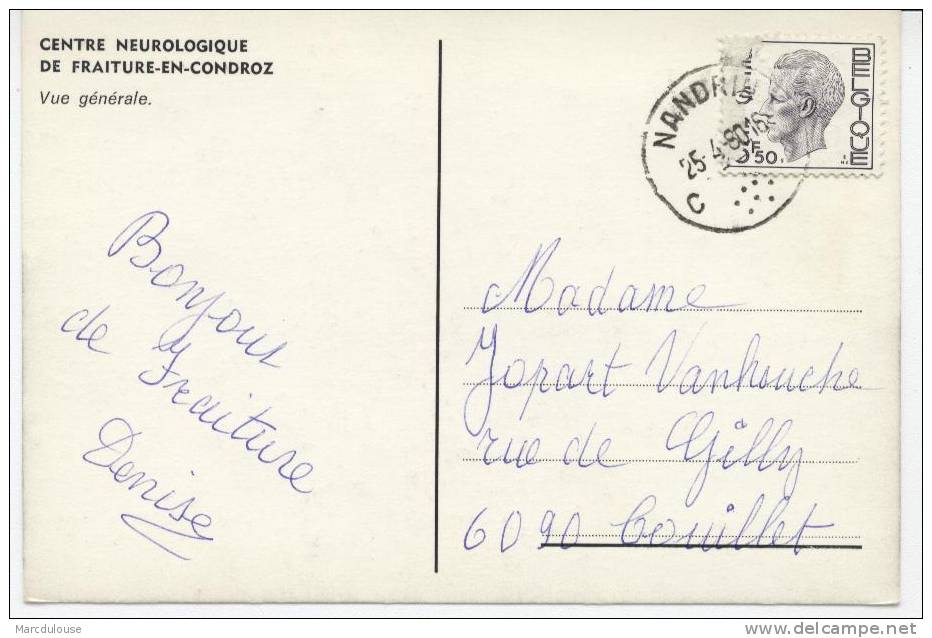 CENTRE NEUROLOGIQUE
DE FRAITURE-EN-CONDROZ
Vue générale.
BELGIQUE
F
50
NANDRIN
25-4-80-16
C
Bonjour
de Fraiture
Denise
Madame
Jopart Vanhouche
rue de Gilly
6090 Couillet
Marcdulouse
delcampe.net